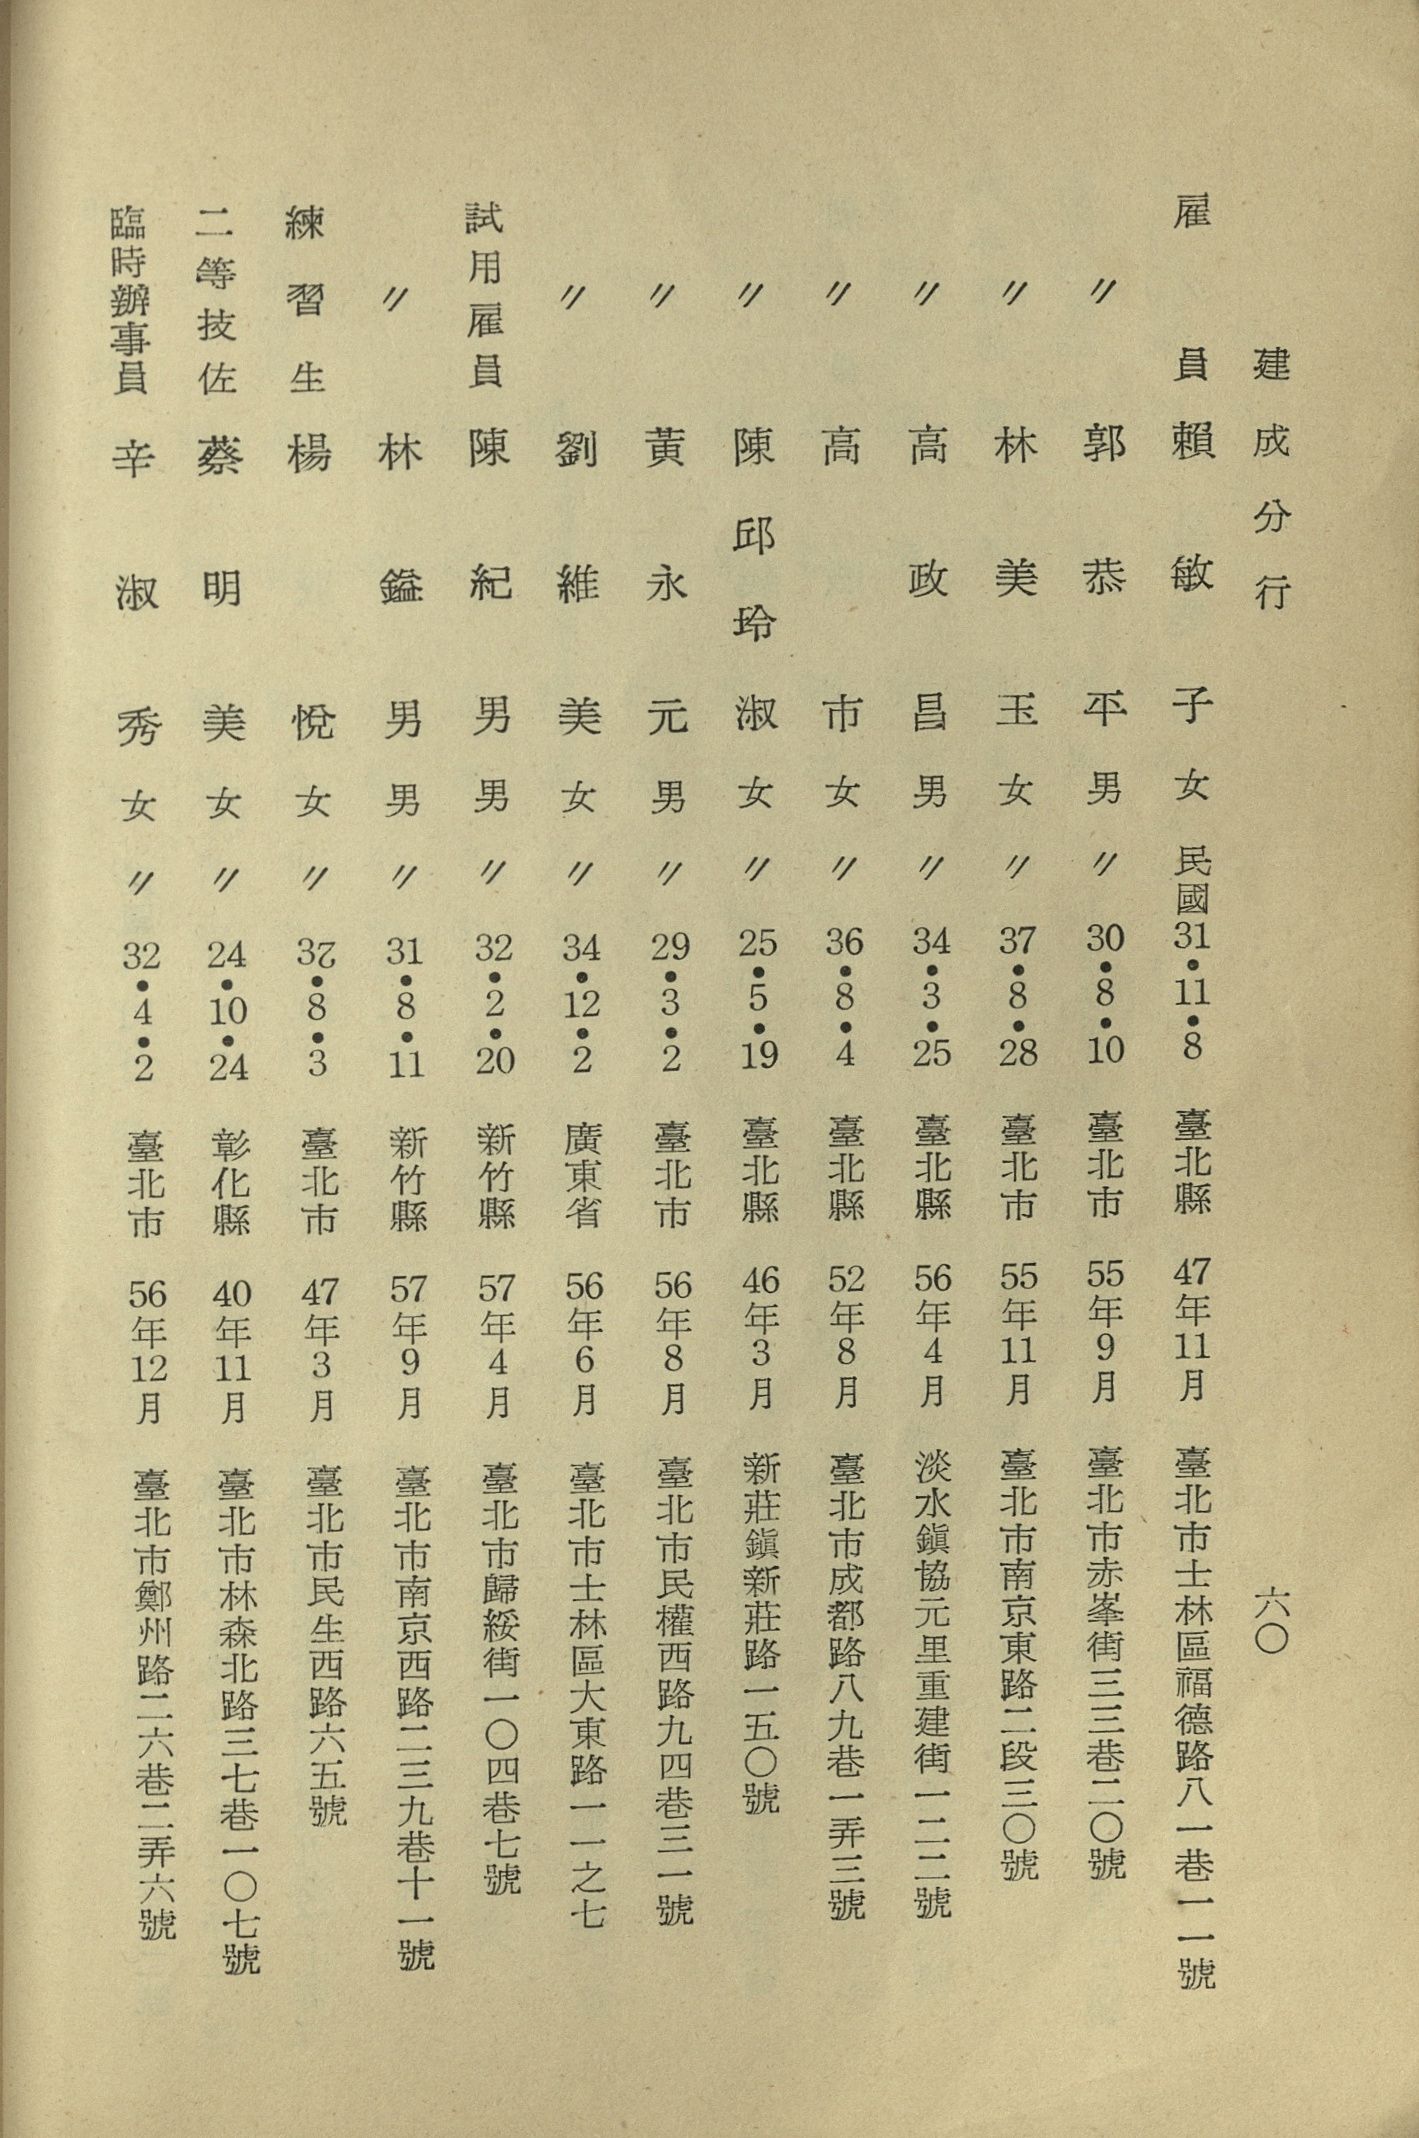 建成分行 六〇
雇員 賴敏子 女 民國31•11•8 臺北縣 47年11月 臺北市士林區福德路八一巷一一號
〃 郭恭平 男 〃 30•8•10 臺北市 55年9月 臺北市赤峯街三三巷二〇號
〃 林美玉 女 〃 37•8•28 臺北市 55年11月 臺北市南京東路二段三〇號
〃 高政昌 男 〃 34•3•25 臺北縣 56年4月 淡水鎭協元里重建街一二二號
〃 高市 女 〃 36•8•4 臺北縣 52年8月 臺北市成都路八九巷一弄三號
〃 陳邱玲淑 女 〃 25•5•19 臺北縣 46年3月 新莊鎭新莊路一五〇號
〃 黃永元 男 〃 29•3•2 臺北市 56年8月 臺北市民權西路九四巷三一號
〃 劉維美 女 〃 34•12•2 廣東省 56年6月 臺北市士林區大東路一一之七
試用雇員 陳紀男 男 〃 32•2•20 新竹縣 57年4月 臺北市歸綏街一〇四巷七號
〃 林鎰男 男 〃 31•8•11 新竹縣 57年9月 臺北市南京西路二三九巷十一號
練習生 楊悅 女 〃 32•8•3 臺北市 47年3月 臺北市民生西路六五號
二等技佐 蔡明美 女 〃 24•10•24 彰化縣 40年11月 臺北市林森北路三七巷一〇七號
臨時辦事員 辛淑秀 女 〃 32•4•2 臺北市 56年12月 臺北市鄭州路二六巷二弄六號